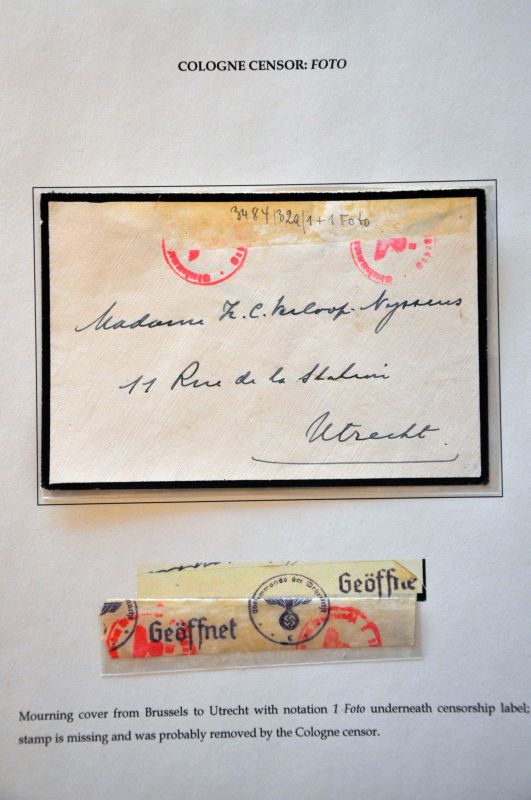 COLOGNE CENSOR: FOTO
3484/32a/1+1 Foto
Madame
11 Rue de la
Utrecht.
Geöffne
Oberkommando der Wehrmacht
Geöffnet
c
Mourning cover from Brussels to Utrecht with notation 1 Foto underneath censorship label;
stamp is missing and was probably removed by the Cologne censor.